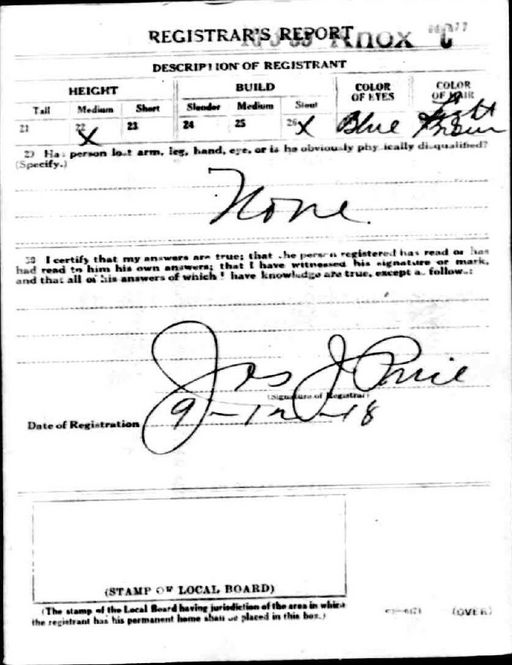 REGISTRAR'S REPORT
Knox C
DESCRIPTION OF REGISTRANT
HEIGHT BUILD COLOR OF EYES COLOR OF HAIR
Tall Medium Short Slender Medium Stout
21 22 X 23 24 25 26 X Blue Light Brown
29 Has person lost arm, leg, hand, eye, or is he obviously physically disqualified?
(Specify.)
None
30 I certify that my answers are true; that the person registered has read or has
had read to him his own answers; that I have witnessed his signature or mark,
and that all of his answers of which I have knowledge are true, except as follows:
Jas J
(Signature of Registrar)
Date of Registration 9-12-18
(STAMP OF LOCAL BOARD)
(The stamp of the Local Board having jurisdiction of the area in which
the registrant has his permanent home shall be placed in this box.)
(OVER)